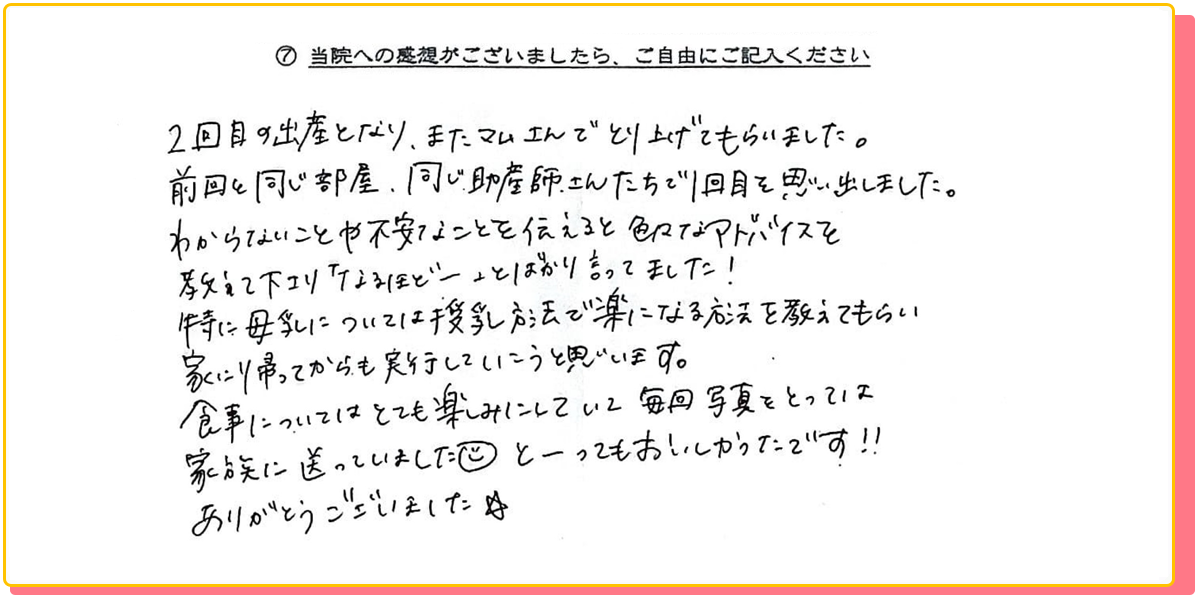 ⑦ 当院への感想がございましたら、ご自由にご記入ください
2回目の出産となり、またマムさんでとり上げてもらいました。
前回と同じ部屋、同じ助産師さんたちで1回目を思い出しました。
わからないことや不安なことを伝えると色々なアドバイスを
教えて下さり「なるほどー」とばかり言ってました!
特に母乳については授乳方法で楽になる方法を教えてもらい
家に帰ってからも実行していこうと思います。
食事についてはとても楽しみにしていて毎回写真をとっては
家族に送っていました☺ とーってもおいしかったです!!
ありがとうございました☆